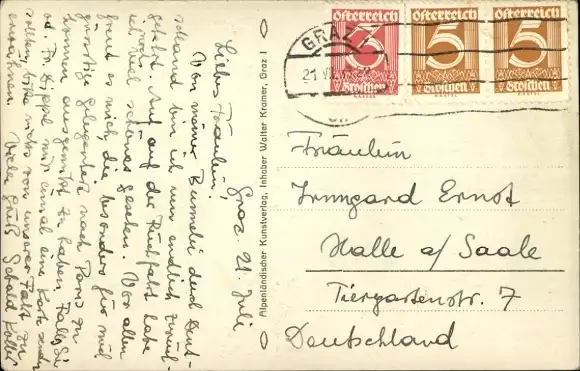 Graz, 21. Juli
Liebes Fräulein!
Von meiner Bummelei durch Deut-
schland bin ich nun endlich zurück-
gekehrt. Auf der Rückfahrt habe
ich noch viel schönes gesehen. Vor allem
freut es mich, die besonders für mich
günstige Gelegenheit nach Paris zu
kommen ausgenutzt zu haben. Falls Sie
od. Fr. mir einmal eine Karte senden
sollten, bitte nichts von unserer Fahrt zu
erwähnen. Viele Grüße
Alpenländischer Kunstverlag, Inhaber Walter Kramer, Graz I
GRAZ
21 VII
Österreich
3
Groschen
Österreich
5
Groschen
Österreich
5
Groschen
Fräulein
Irmgard Ernst
Halle a/Saale
Tiergartenstr. 7
Deutschland